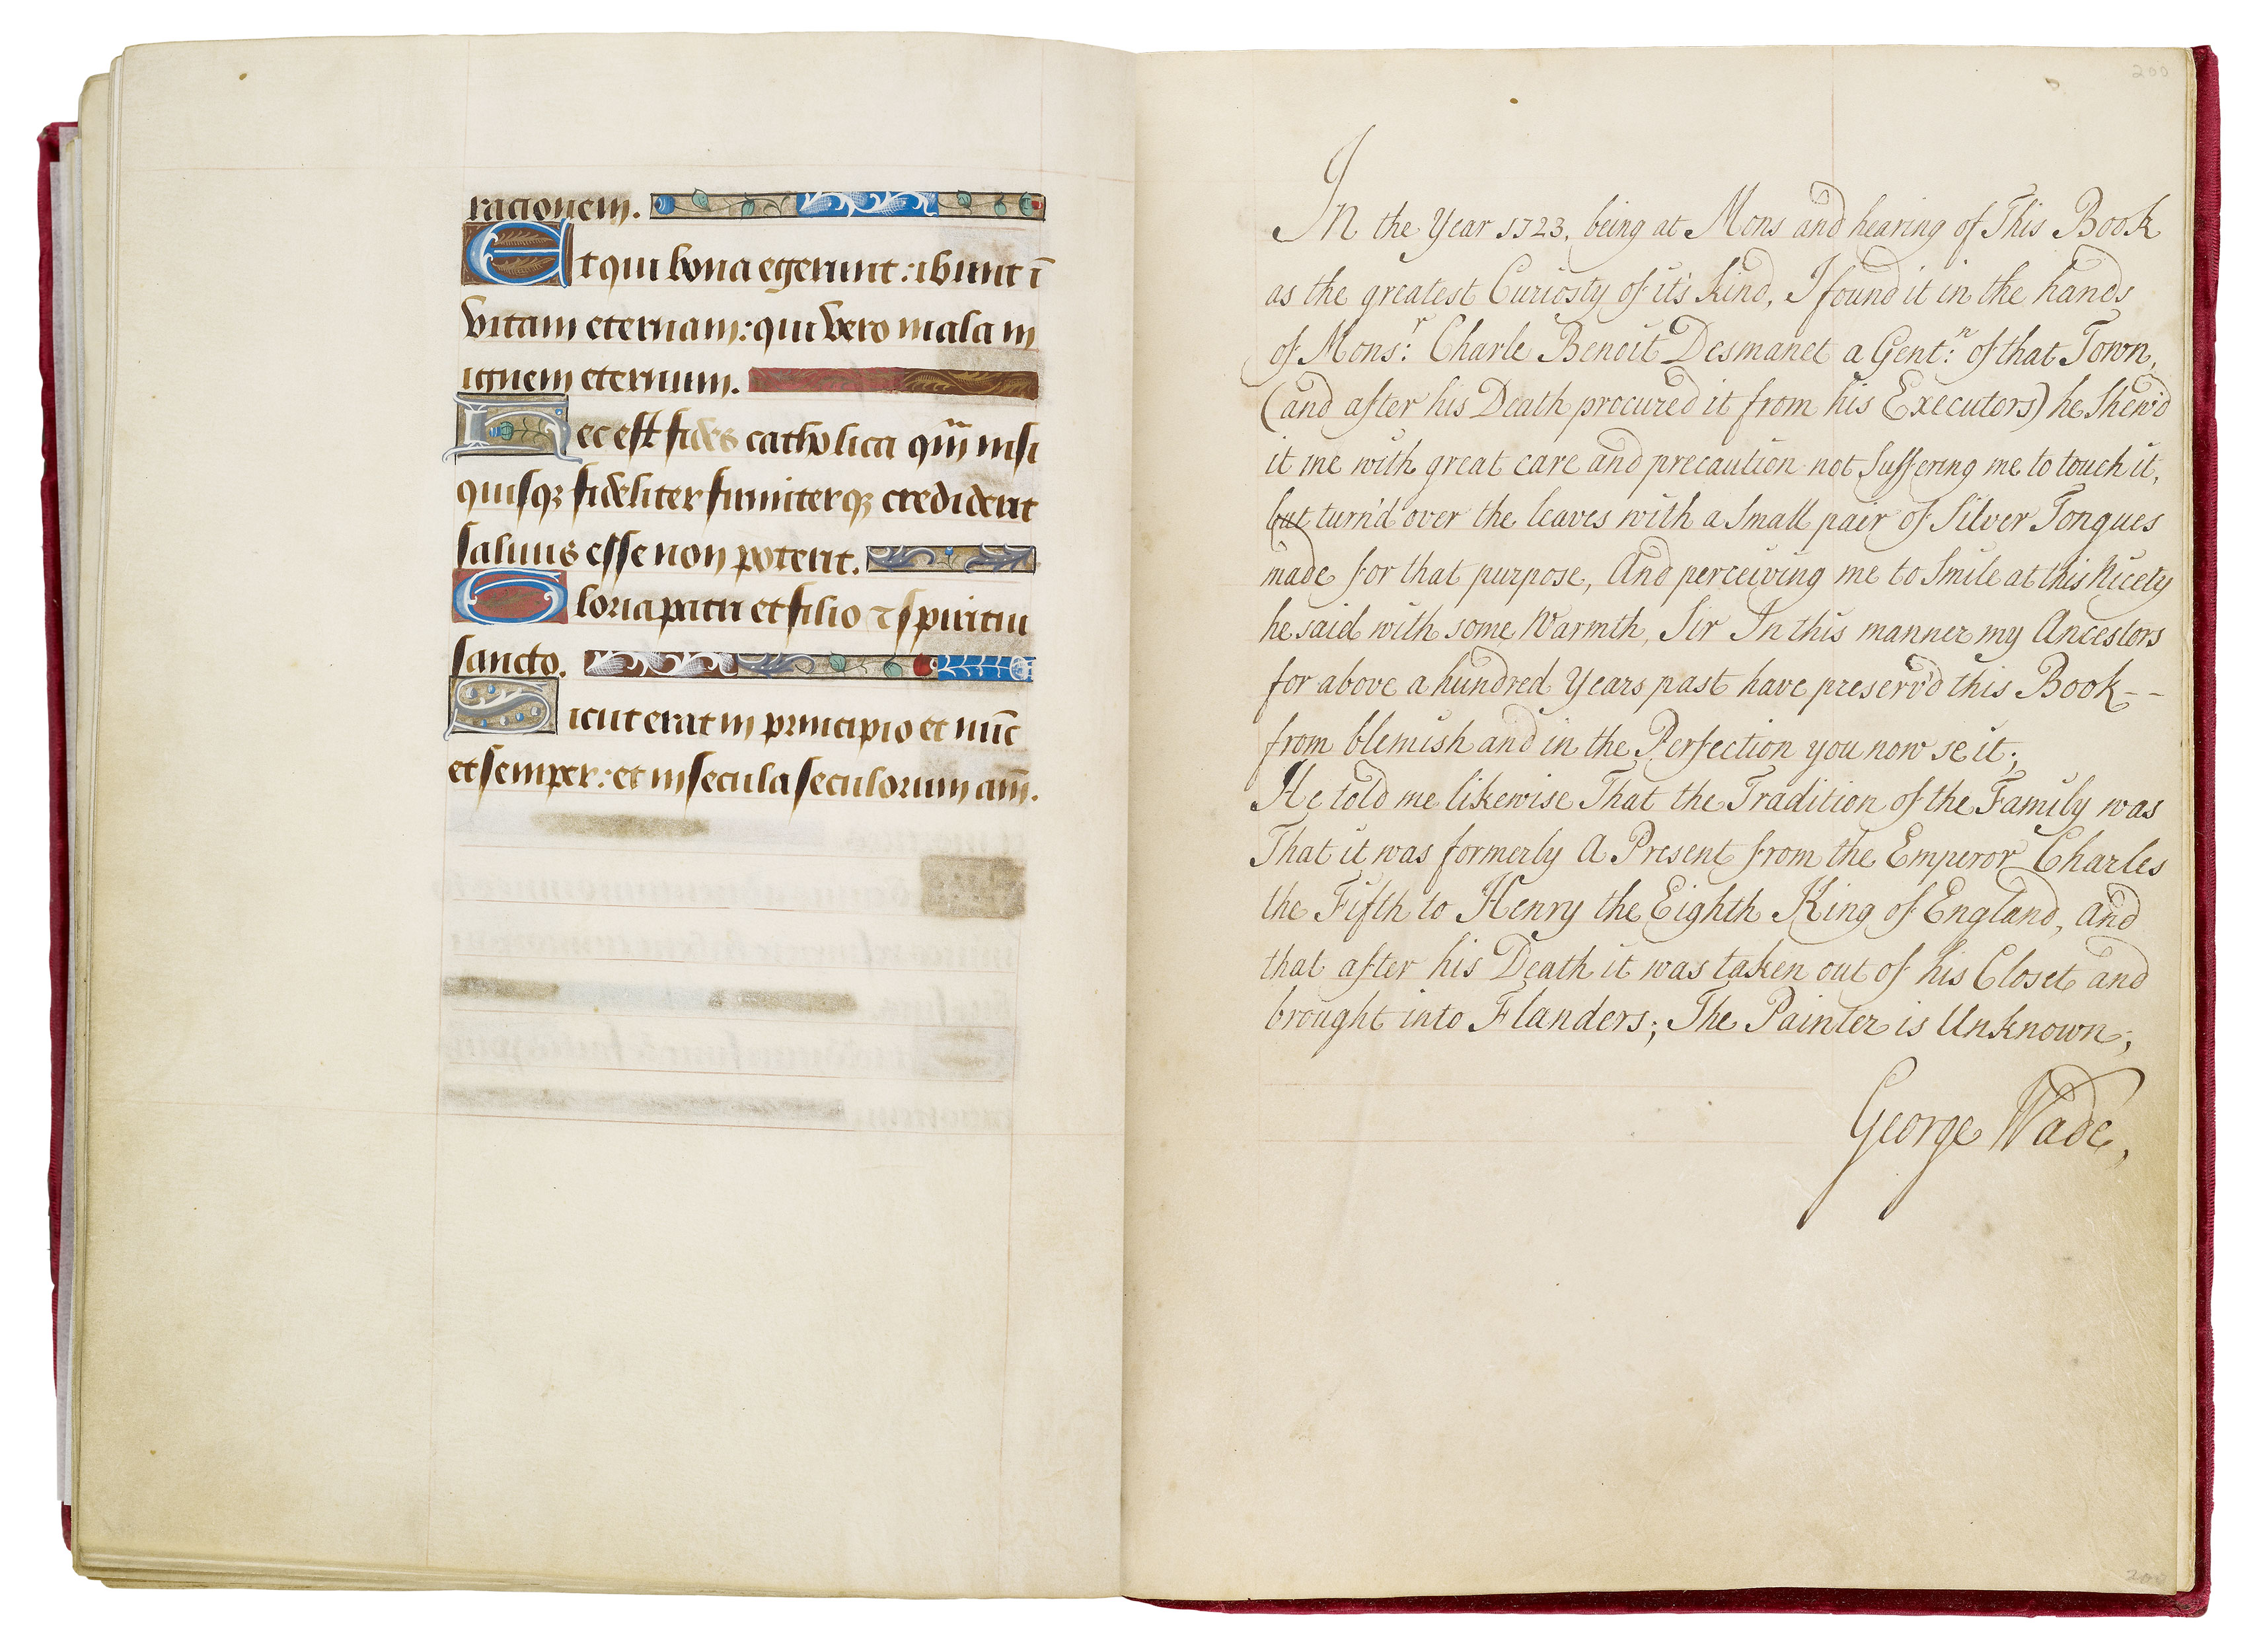 racionem.
Et qui bona egerunt: ibunt ī
vitam eternam: qui vero mala in
ignem eternum.
Hec est fides catholica quā nisi
quisqꝫ fideliter firmiterqꝫ crediderit
saluus esse non poterit.
Gloria patri et filio ⁊ spiritui
sancto.
Sicut erat in principio et nūc
et semper: et in secula seculorum am̄.
200
In the Year 1723, being at Mons and hearing of This Book
as the greatest Curiosty of it's kind, I found it in the hands
of Mons:r Charle Benoit Desmanet a Gent:n of that Town,
(and after his Death procured it from his Executors) he Shew'd
it me with great care and precaution not Suffering me to touch it,
but turn'd over the leaves with a Small pair of Silver Tongues
made for that purpose, And perceiving me to Smile at this Nicety
he said with some Warmth, Sir In this manner my Ancestors
for above a hundred Years past have preserv'd this Book--
from blemish and in the Perfection you now se it;
He told me likewise That the Tradition of the Family was
That it was formerly A Present from the Emperor Charles
the Fifth to Henry the Eighth King of England, and
that after his Death it was taken out of his Closet and
brought into Flanders; The Painter is Unknown;
George Wade,
200